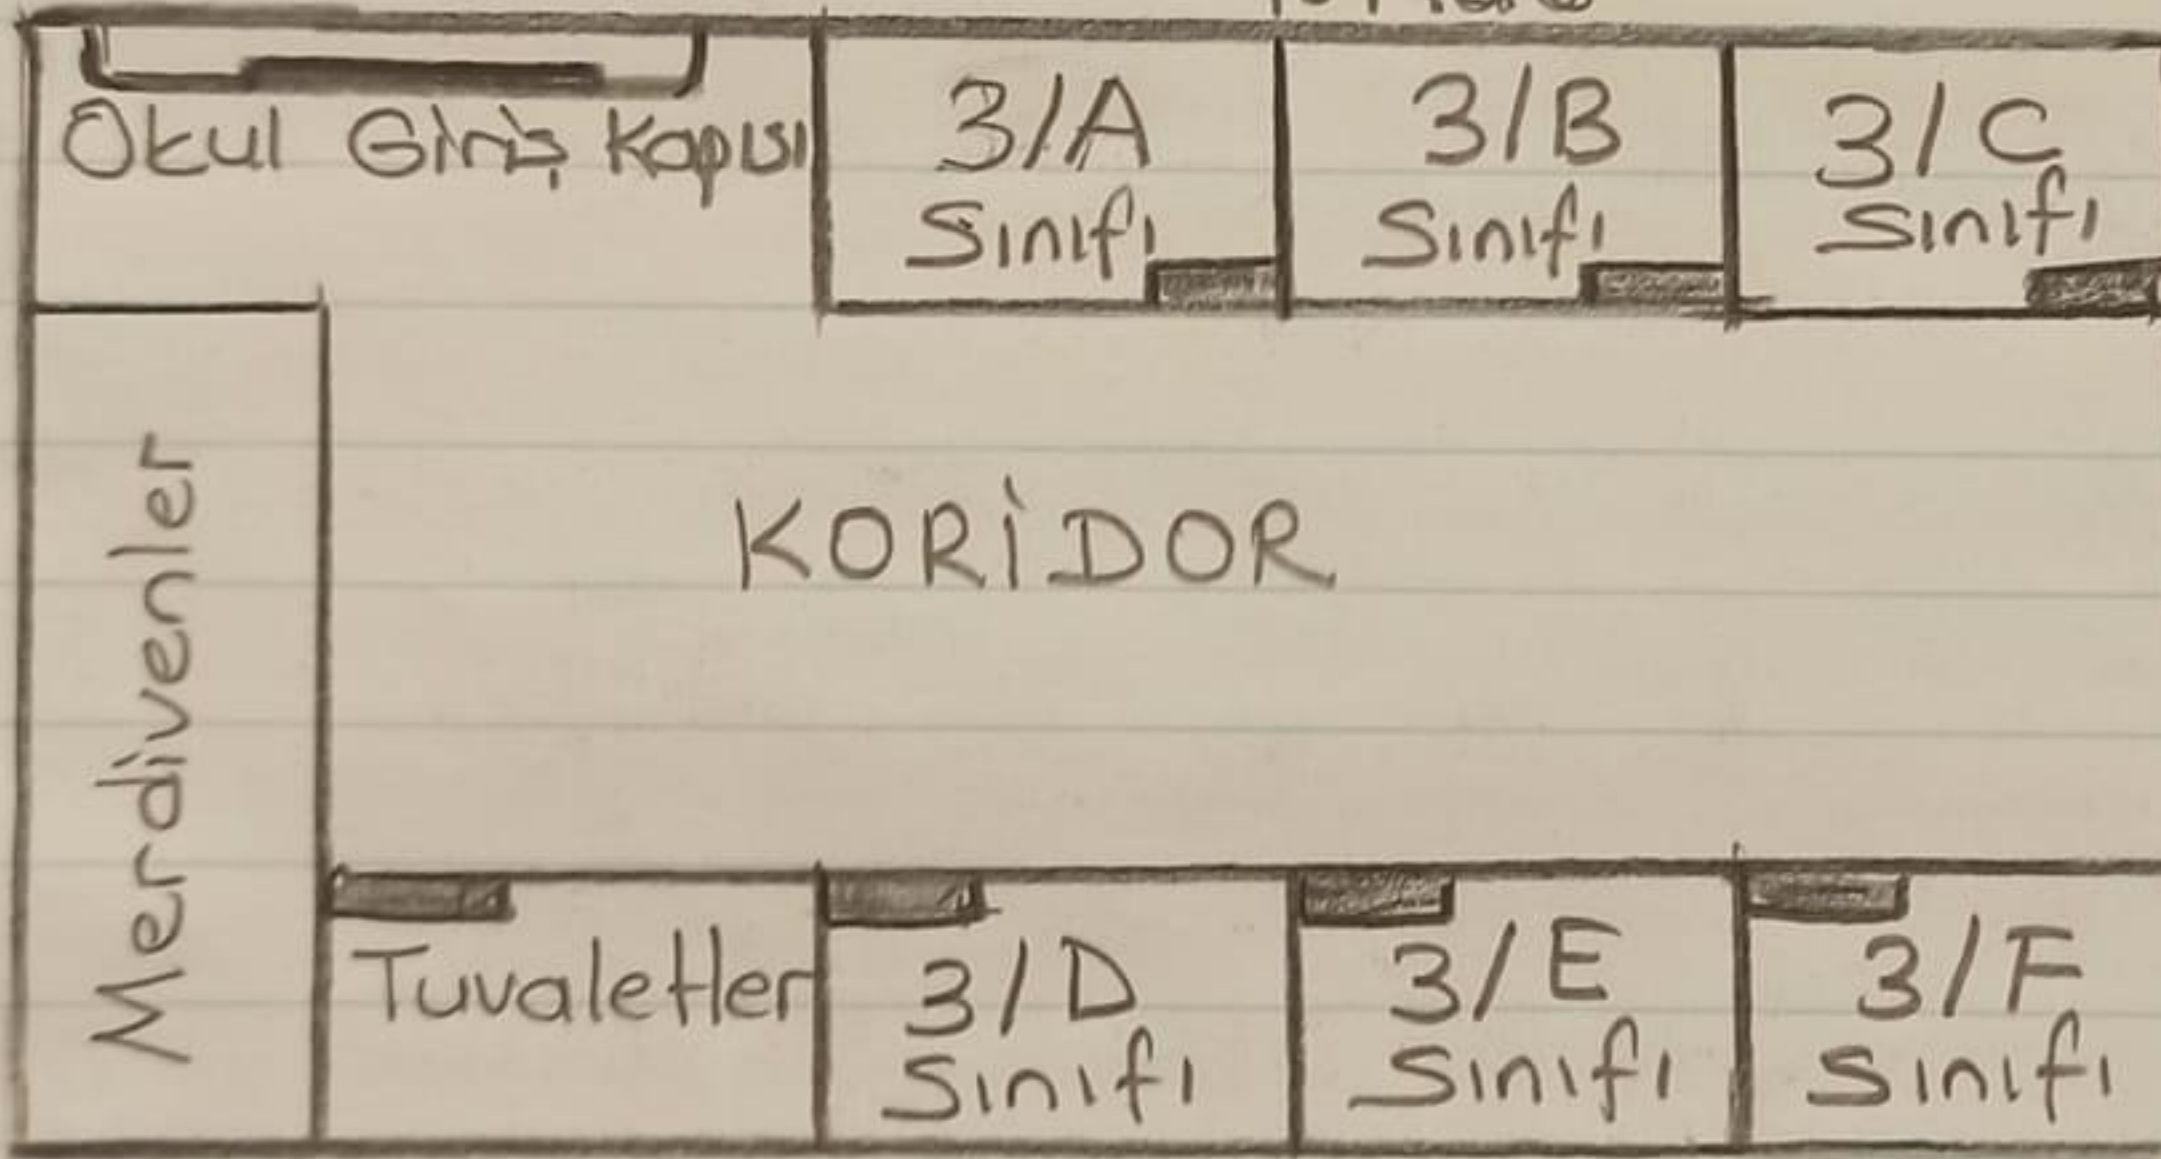 Okul Giriş Kapısı
3/A
Sınıfı
3/B
Sınıfı
3/C
Sınıfı
Merdivenler
KORİDOR
Tuvaletler
3/D
Sınıfı
3/E
Sınıfı
3/F
Sınıfı